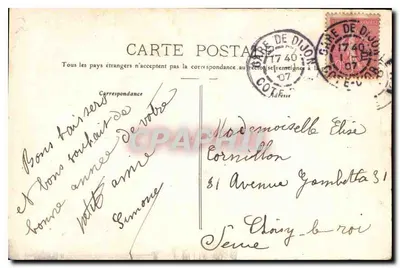 CARTE POSTALE
Tous les pays étrangers n'acceptent pas la correspondance au verso
Correspondance
Adresse
GARE DE DIJON
17 40
07
COTE-D'OR
GARE DE DIJON
17 40
07
COTE-D'OR
Bons baisers
et bons souhait de
bonne année de votre
petite amie
Simone
Mademoiselle Elise
Cornillon
31 Avenue Gambetta 31
Choisy-le-roi
Seine